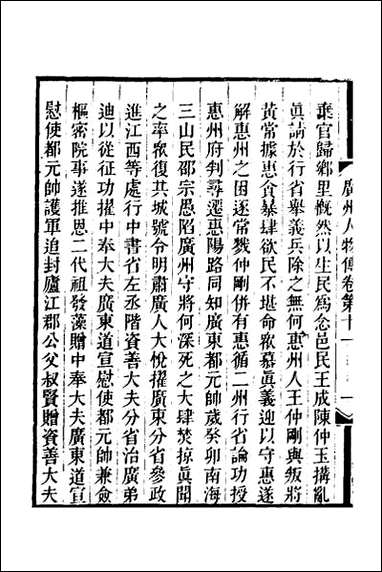 廣州人物傳卷第十一
棄官歸鄉里慨然以生民爲念邑民王成陳仲玉搆亂
眞請於行省舉義兵除之無何惠州人王仲剛與叛將
黃常據惠貪暴肆欲民不堪命衆慕眞義迎以守惠遂
解惠州之困逐常戮仲剛併有惠循二州行省論功授
惠州府判尋遷惠陽路同知廣東都元帥歲癸卯南海
三山民邵宗愚陷廣州守將何深死之大肆焚掠眞聞
之率衆復其城號令明肅廣人大悅擢廣東分省參政
進江西等處行中書省左丞階資善大夫分省治廣弟
迪以從征功擢中奉大夫廣東道宣慰使都元帥兼僉
樞密院事遂推恩二代祖發藻贈中奉大夫廣東道宣
慰使都元帥護軍追封廬江郡公父叔賢贈資善大夫